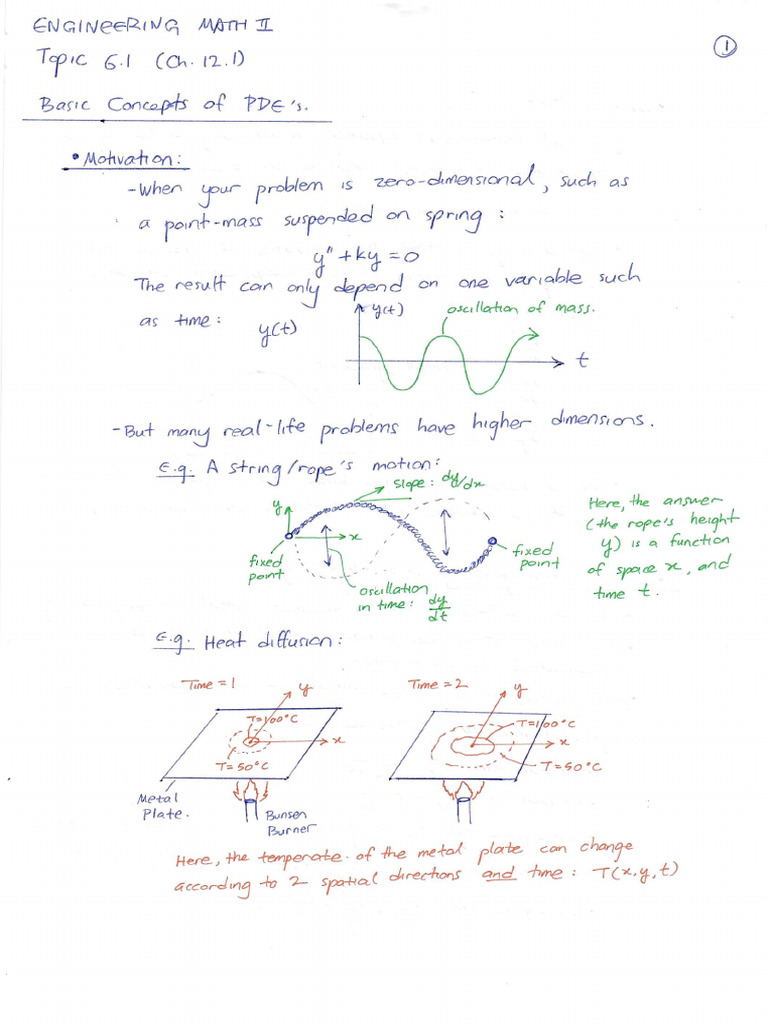 ENGINEERING MATH II
①
Topic 6.1 (Ch. 12.1)
Basic Concepts of PDE's.
• Motivation:
- When your problem is zero-dimensional, such as
a point-mass suspended on spring :
y" + ky = 0
The result can only depend on one variable such
as time : y(t)
y(t)
oscillation of mass.
t
- But many real-life problems have higher dimensions.
E.g. A string/rope's motion:
slope : dy/dx
y
x
fixed
point
fixed
point
oscillation
in time : dy/dt
Here, the answer
(the rope's height
y) is a function
of space x, and
time t.
E.g. Heat diffusion :
Time = 1
y
T=100°C
x
T=50°C
Metal
Plate.
Bunsen
Burner
Time = 2
y
T=100°C
x
T=50°C
Here, the temperate of the metal plate can change
according to 2 spatial directions and time : T(x,y,t)